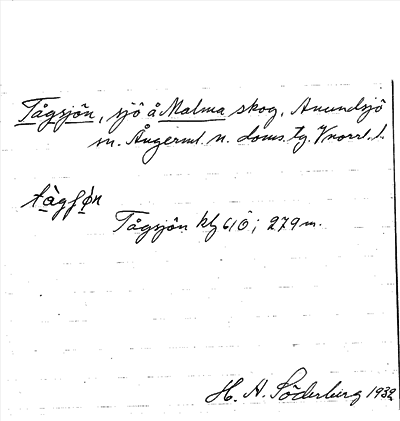 Tågsjön, sjö å Malma skog, Anundsjö
sn. Ångerml. n. doms. tg. Vnorrl. l.
tàgʃø̀n
Tågsjön kbl 61Ö; 279 m.
H. A. Söderberg 1932